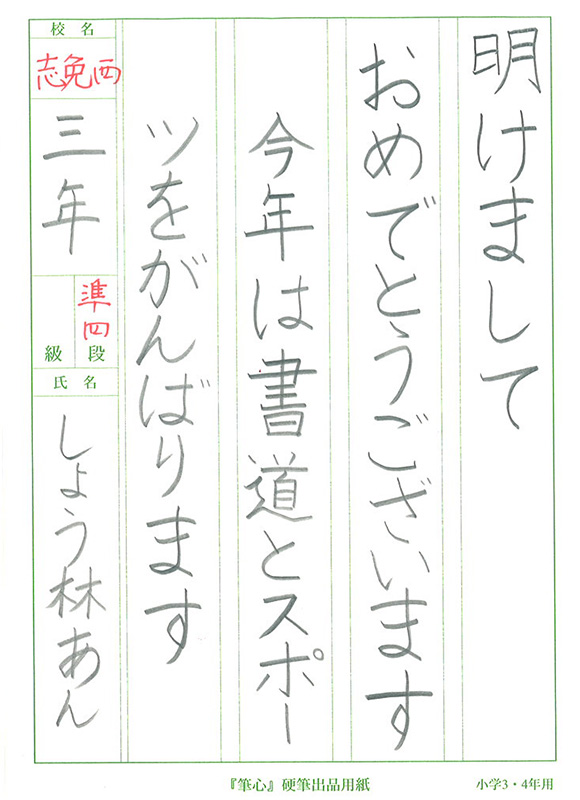 明けまして
おめでとうございます
今年は書道とスポー
ツをがんばります
校名
志免西
三年
準四
級 段
氏名
しょう林あん
『筆心』硬筆出品用紙
小学3・4年用